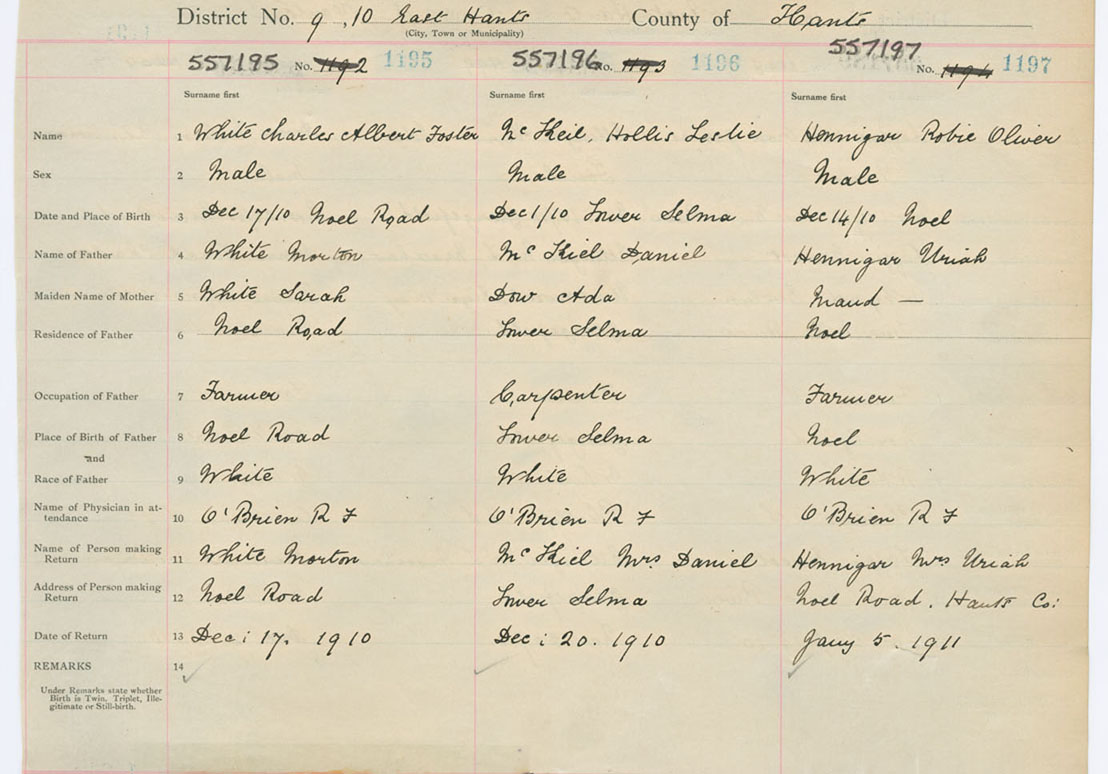 District No. 9, 10 East Hants County of Hants
(City, Town or Municipality)
557195 No. 1192 1195 557196 No. 1193 1196 557197 No. 1194 1197
Surname first Surname first Surname first
Name 1 White Charles Albert Foster Mc Kiel, Hollis Leslie Hennigar Robie Oliver
Sex 2 Male Male Male
Date and Place of Birth 3 Dec 17/10 Noel Road Dec 1/10 Lower Selma Dec 14/10 Noel
Name of Father 4 White Morton Mc Kiel Daniel Hennigar Uriah
Maiden Name of Mother 5 White Sarah Dow Ada Maud —
Residence of Father 6 Noel Road Lower Selma Noel
Occupation of Father 7 Farmer Carpenter Farmer
Place of Birth of Father 8 Noel Road Lower Selma Noel
and
Race of Father 9 White White White
Name of Physician in at-
tendance 10 O'Brien R F O'Brien R F O'Brien R F
Name of Person making
Return 11 White Morton Mc Kiel Mrs Daniel Hennigar Mrs Uriah
Address of Person making
Return 12 Noel Road Lower Selma Noel Road, Hants Co:
Date of Return 13 Dec: 17. 1910 Dec: 20. 1910 Jany 5. 1911
REMARKS 14
Under Remarks state whether
Birth is Twin, Triplet, Ille-
gitimate or Still-birth.